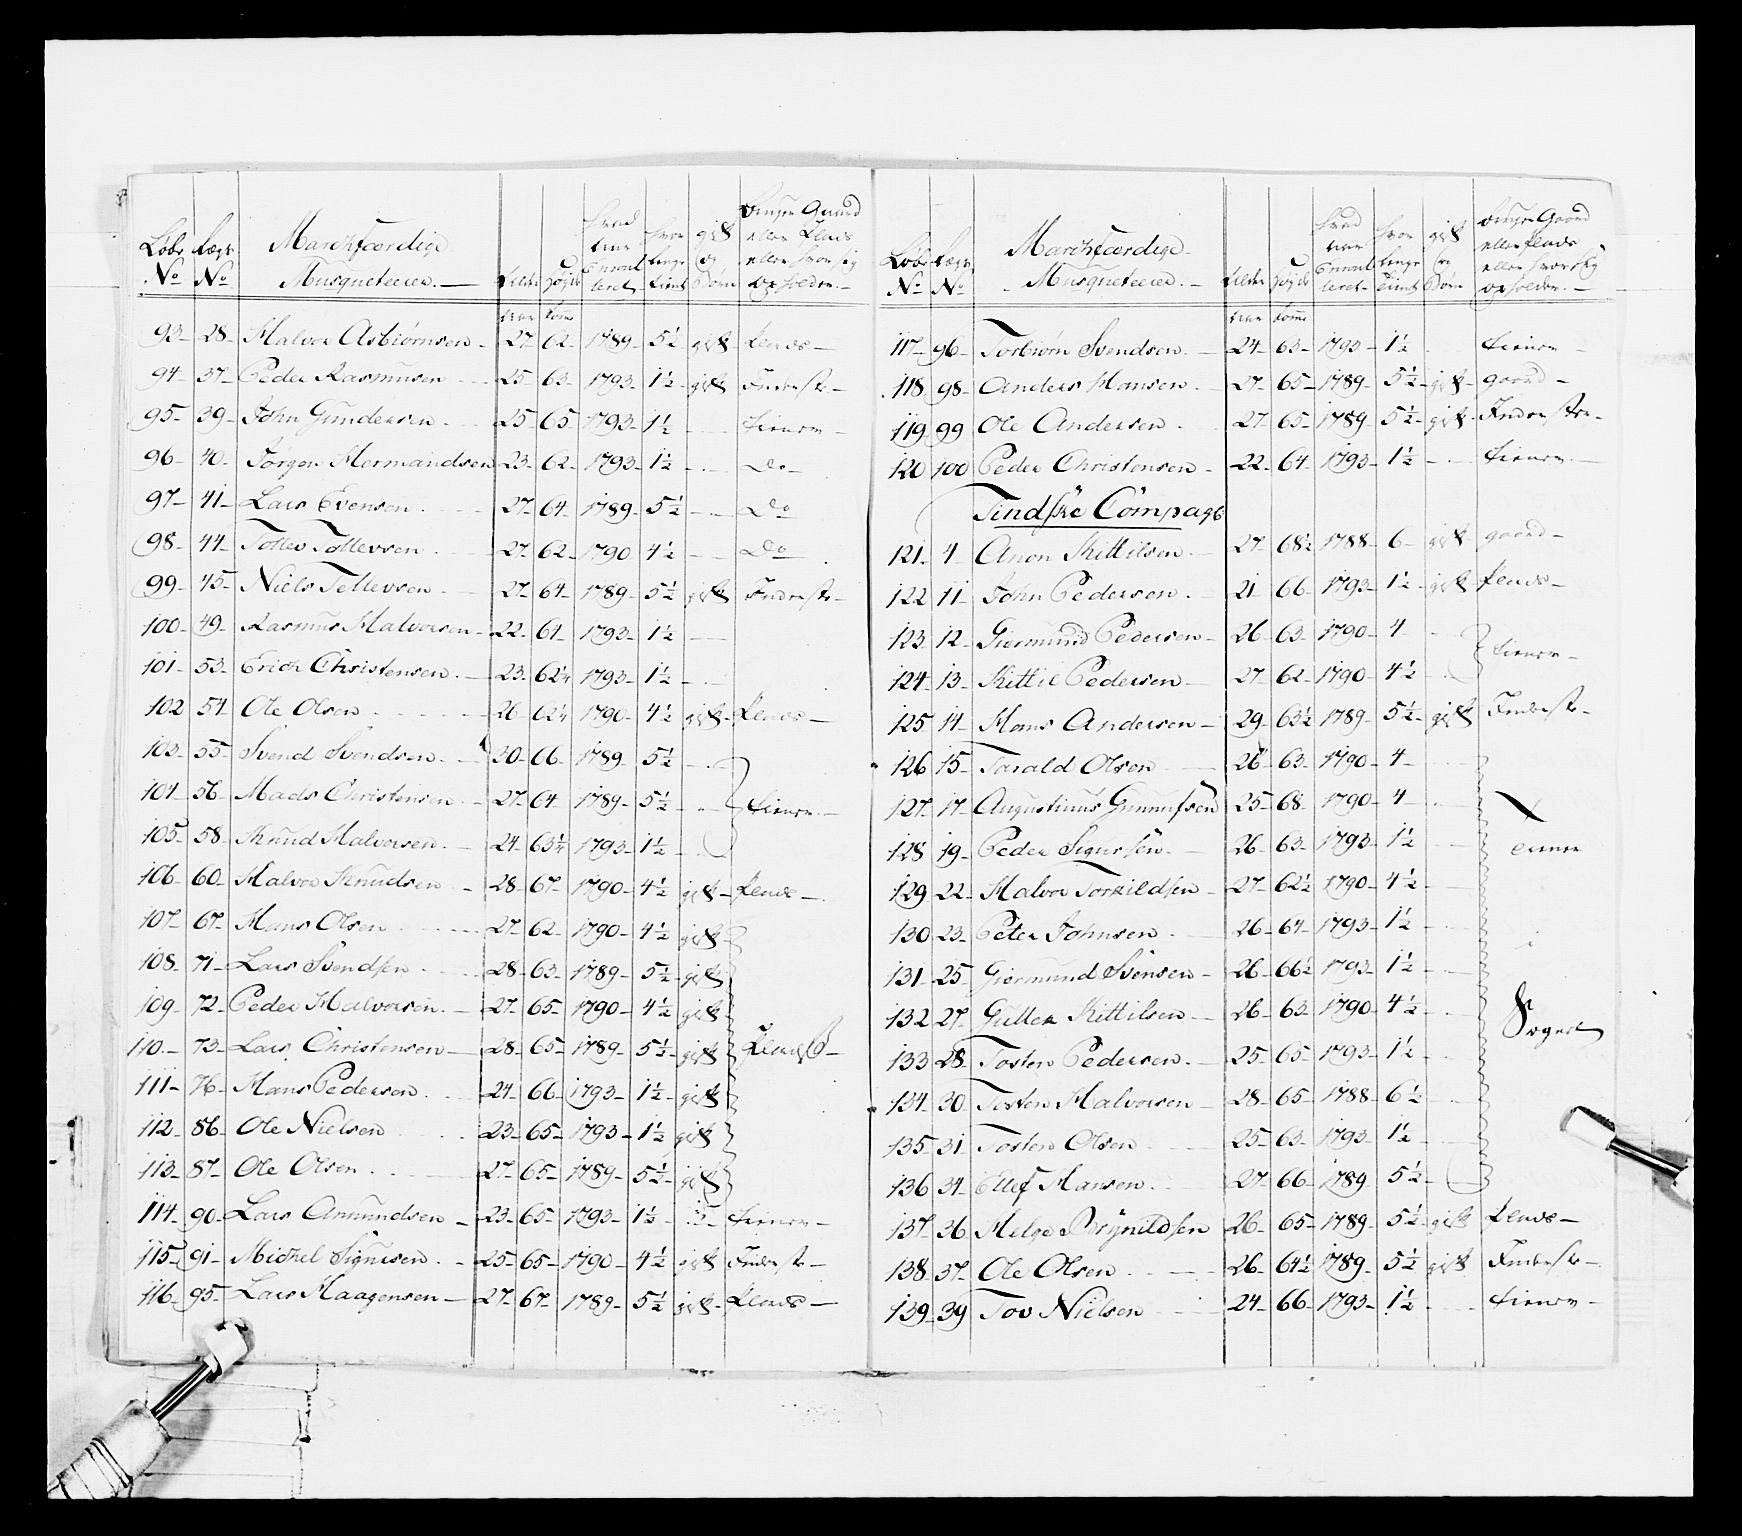 Løbe No Lægs No Marchfærdige Musqueteerer. Alder Aar Høyde Tom: hvad Aar Enroulleret hvor lenge tient gift og Børn Bruger Gaard eller Plads eller hvor sig opholder.
93 28 Halvor Asbiørnsen 27 62 1789 5½ gift Plads
94 37 Peder Rasmusen 25 63 1793 1½ gift Inderste
95 39 John Gundersen 25 65 1793 1½ tiener
96 40 Jørgen Hermandsen 23 62 1793 1½ Do
97 41 Lars Evensen 27 64 1789 5½ Do
98 44 Tollev Tollevsen 27 62 1790 4½ Do
99 45 Niels Tellevsen 27 64 1789 5½ gift Inderste
100 49 Rasmus Halvorsen 22 61 1793 1½
101 53 Erich Christensen 23 62¼ 1793 1½
102 54 Ole Olsen 26 62¼ 1790 4½ gift Plads
103 55 Svend Svendsen 30 66 1789 5½
104 56 Mads Christensen 27 64 1789 5½ tiener
105 58 Knud Halvorsen 24 63¼ 1793 1½
106 60 Halvor Knudsen 28 67 1790 4½ gift Plads
107 67 Hans Olsen 27 62 1790 4½ gift
108 71 Lars Svendsen 28 63 1789 5½ gift
109 72 Peder Halvorsen 27 65 1790 4½ gift
110 73 Lars Christensen 28 65 1789 5½ gift Plads
111 76 Hans Pedersen 24 66 1793 1½ gift
112 86 Ole Nielsen 23 65 1793 1½ gift
113 87 Ole Olsen 27 65 1789 5½ gift
114 90 Lars Amundsen 23 65 1793 1½ tiener
115 91 Michel Sigursen 25 65 1790 4½ gift Inderste
116 95 Lars Haagensen 27 67 1789 5½ gift Plads
Løbe No Lægs No Marchfærdige Musqueteerer. Alder Aar Høyde Tomme hvad Aar Enroulleret hvor lenge tient gift og Børn Bruger Gaard eller Plads eller hvor sig opholder.
117 96 Torbiørn Svendsen 24 63 1793 1½ tiener
118 98 Anders Hansen 27 65 1789 5½ gift gaard
119 99 Ole Andersen 27 65 1789 5½ gift Inderster
120 100 Peder Christensen 22 64 1793 1½ tiener
Tindske Compag:
121 4 Anon Kittilsen 27 68½ 1788 6 gift gaard
122 11 John Pedersen 21 66 1793 1½ gift Plads
123 12 Giermund Pedersen 26 63 1790 4 tiener
124 13 Kittil Pedersen 27 62 1790 4½
125 14 Hans Andersen 29 63½ 1789 5½ gift Inderste
126 15 Tarald Olsen 26 63 1790 4
127 17 Augustinus Gunnufsen 25 68 1790 4
128 19 Peder Sigursen 26 63 1793 1½
129 22 Halvor Torkildsen 27 62½ 1790 4½
130 23 Peter Johnsen 26 64 1793 1½ i
131 25 Giermund Svensen 26 66½ 1793 1½
132 27 Gulle Kittilsen 26 63 1790 4½ Sognet
133 28 Tosten Pedersen 25 65 1793 1½
134 30 Tosten Halvorsen 28 65 1788 6½
135 31 Tosten Olsen 25 63 1793 1½
136 34 Ellef Hansen 27 66 1789 5½
137 36 Helge Brynildsen 26 65 1789 5½ gift Plads
138 37 Ole Olsen 26 64½ 1789 5½ gift Inderste
139 39 Tov Nielsen 24 66 1793 1½ tiener